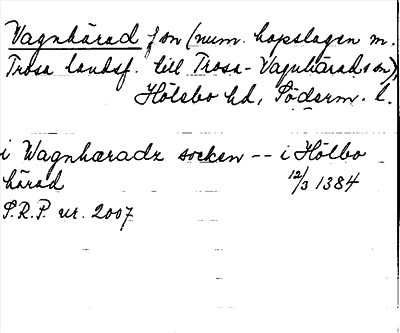 Vagnhärad sn (num. hopslagen m.
Trosa landsf. till Trosa-Vagnhärads sn),
Hölebo hd, Söderm. l.
i Wagnhæradz socken -- i Hölbo
härad 12/3 1384
S.R.P. nr. 2007